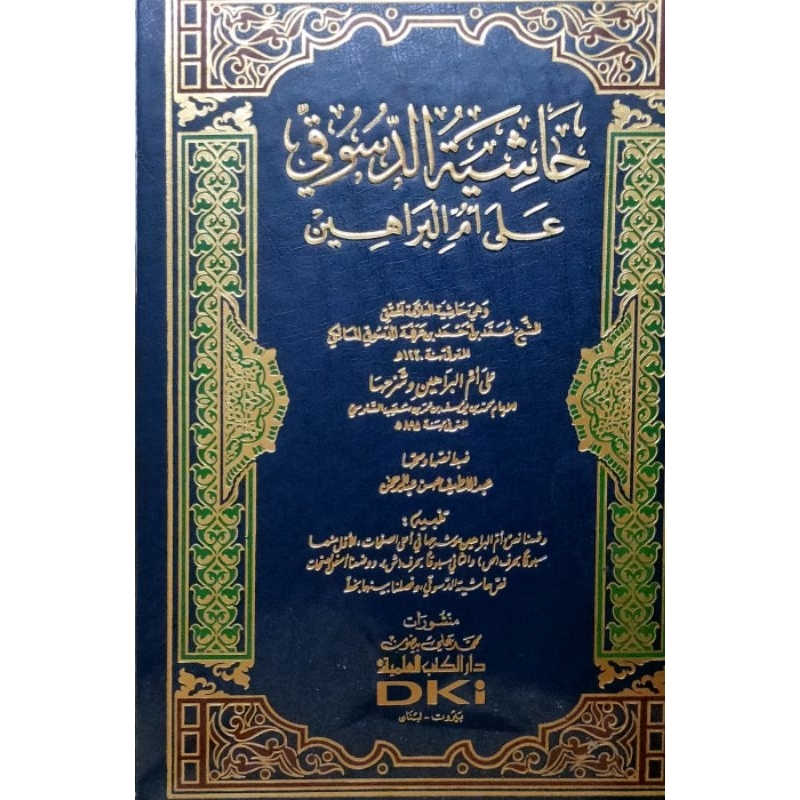 حَاشِيَةُ الدُّسُوقِيِّ
عَلَى أُمِّ البَرَاهِين
وَهِيَ حَاشِيَة العَلَّامَة المحَقِّق
الشَّيْخ مُحَمَّد بن أَحْمَد بن عَرَفَة الدُّسُوقي المالِكي
المتوفى سنة ١٢٣٠هـ
عَلى أمّ البراهين وشرحها
للإمام محمد بن يوسف بن عمر بن شعيب السنوسي
المتوفى سنة ٨٩٥هـ
ضبط نصها وصححها
عبد اللطيف حسن عبد الرحمن
تنبيه:
وضعنا نص أم البراهين وشرحها في أعلى الصفحات، الأول منهما
مسبوقًا بحرف (ص)، والثاني مسبوقًا بحرف (ش)، ووضعنا أسفل الصفحات
نص حاشية الدسوقي، وفصلنا بينهما بخط
منشورات
محمد علي بيضون
دار الكتب العلمية
DKi
بيروت - لبنان